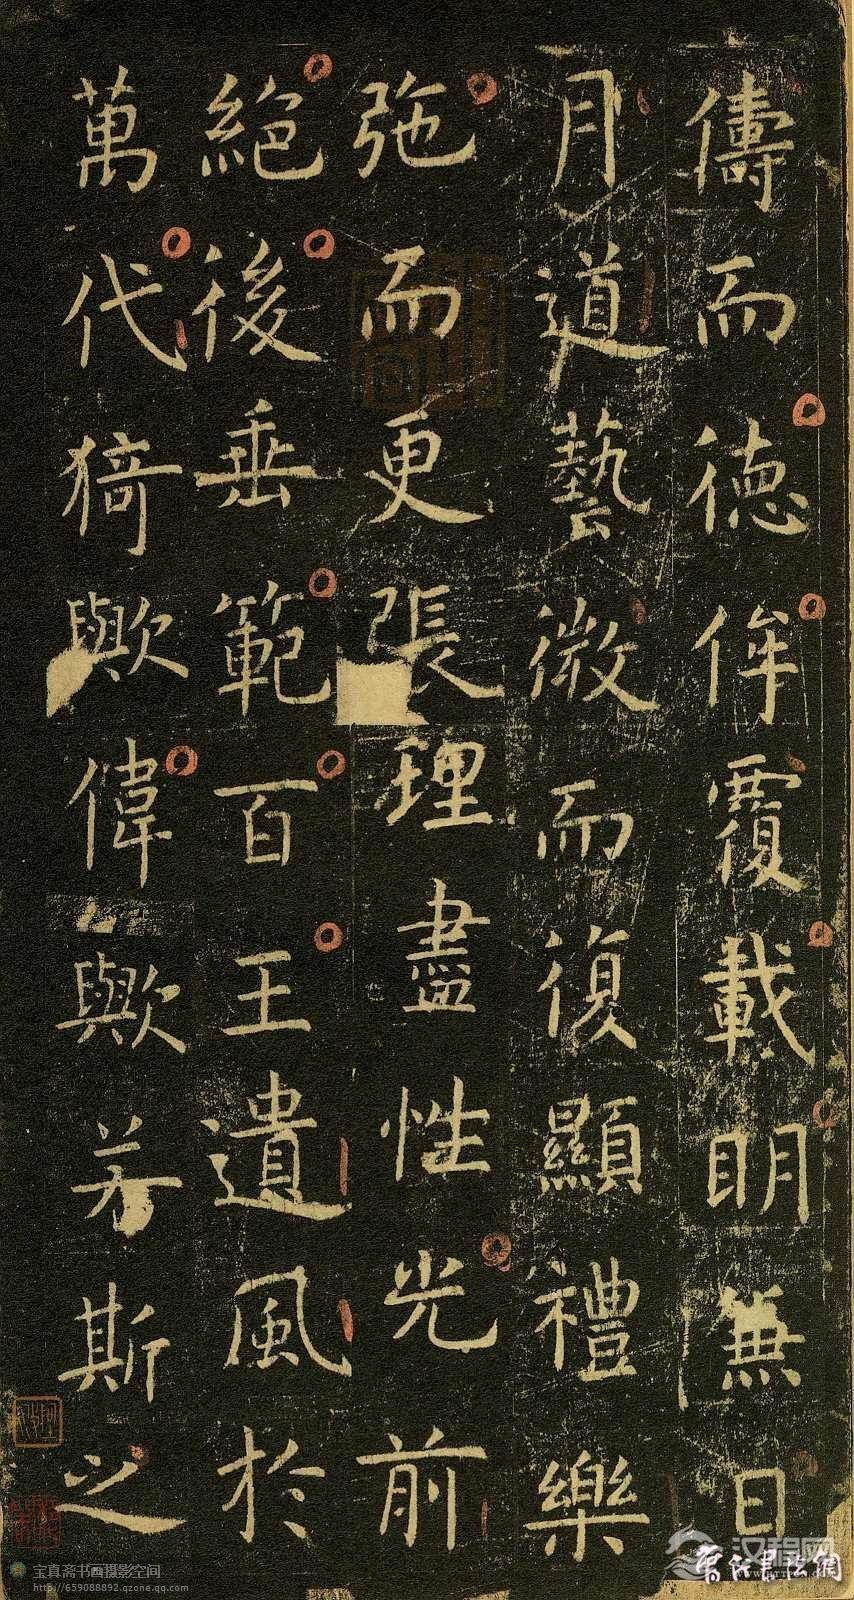 儔而德侔覆載明無日
月道藝微而復顯禮樂
弛而更張理盡性光前
絕後垂範百王遺風於
萬代猗歟偉歟若斯之
汉程网
宝真斋书画摄影空间
http://659088892.qzone.qq.com